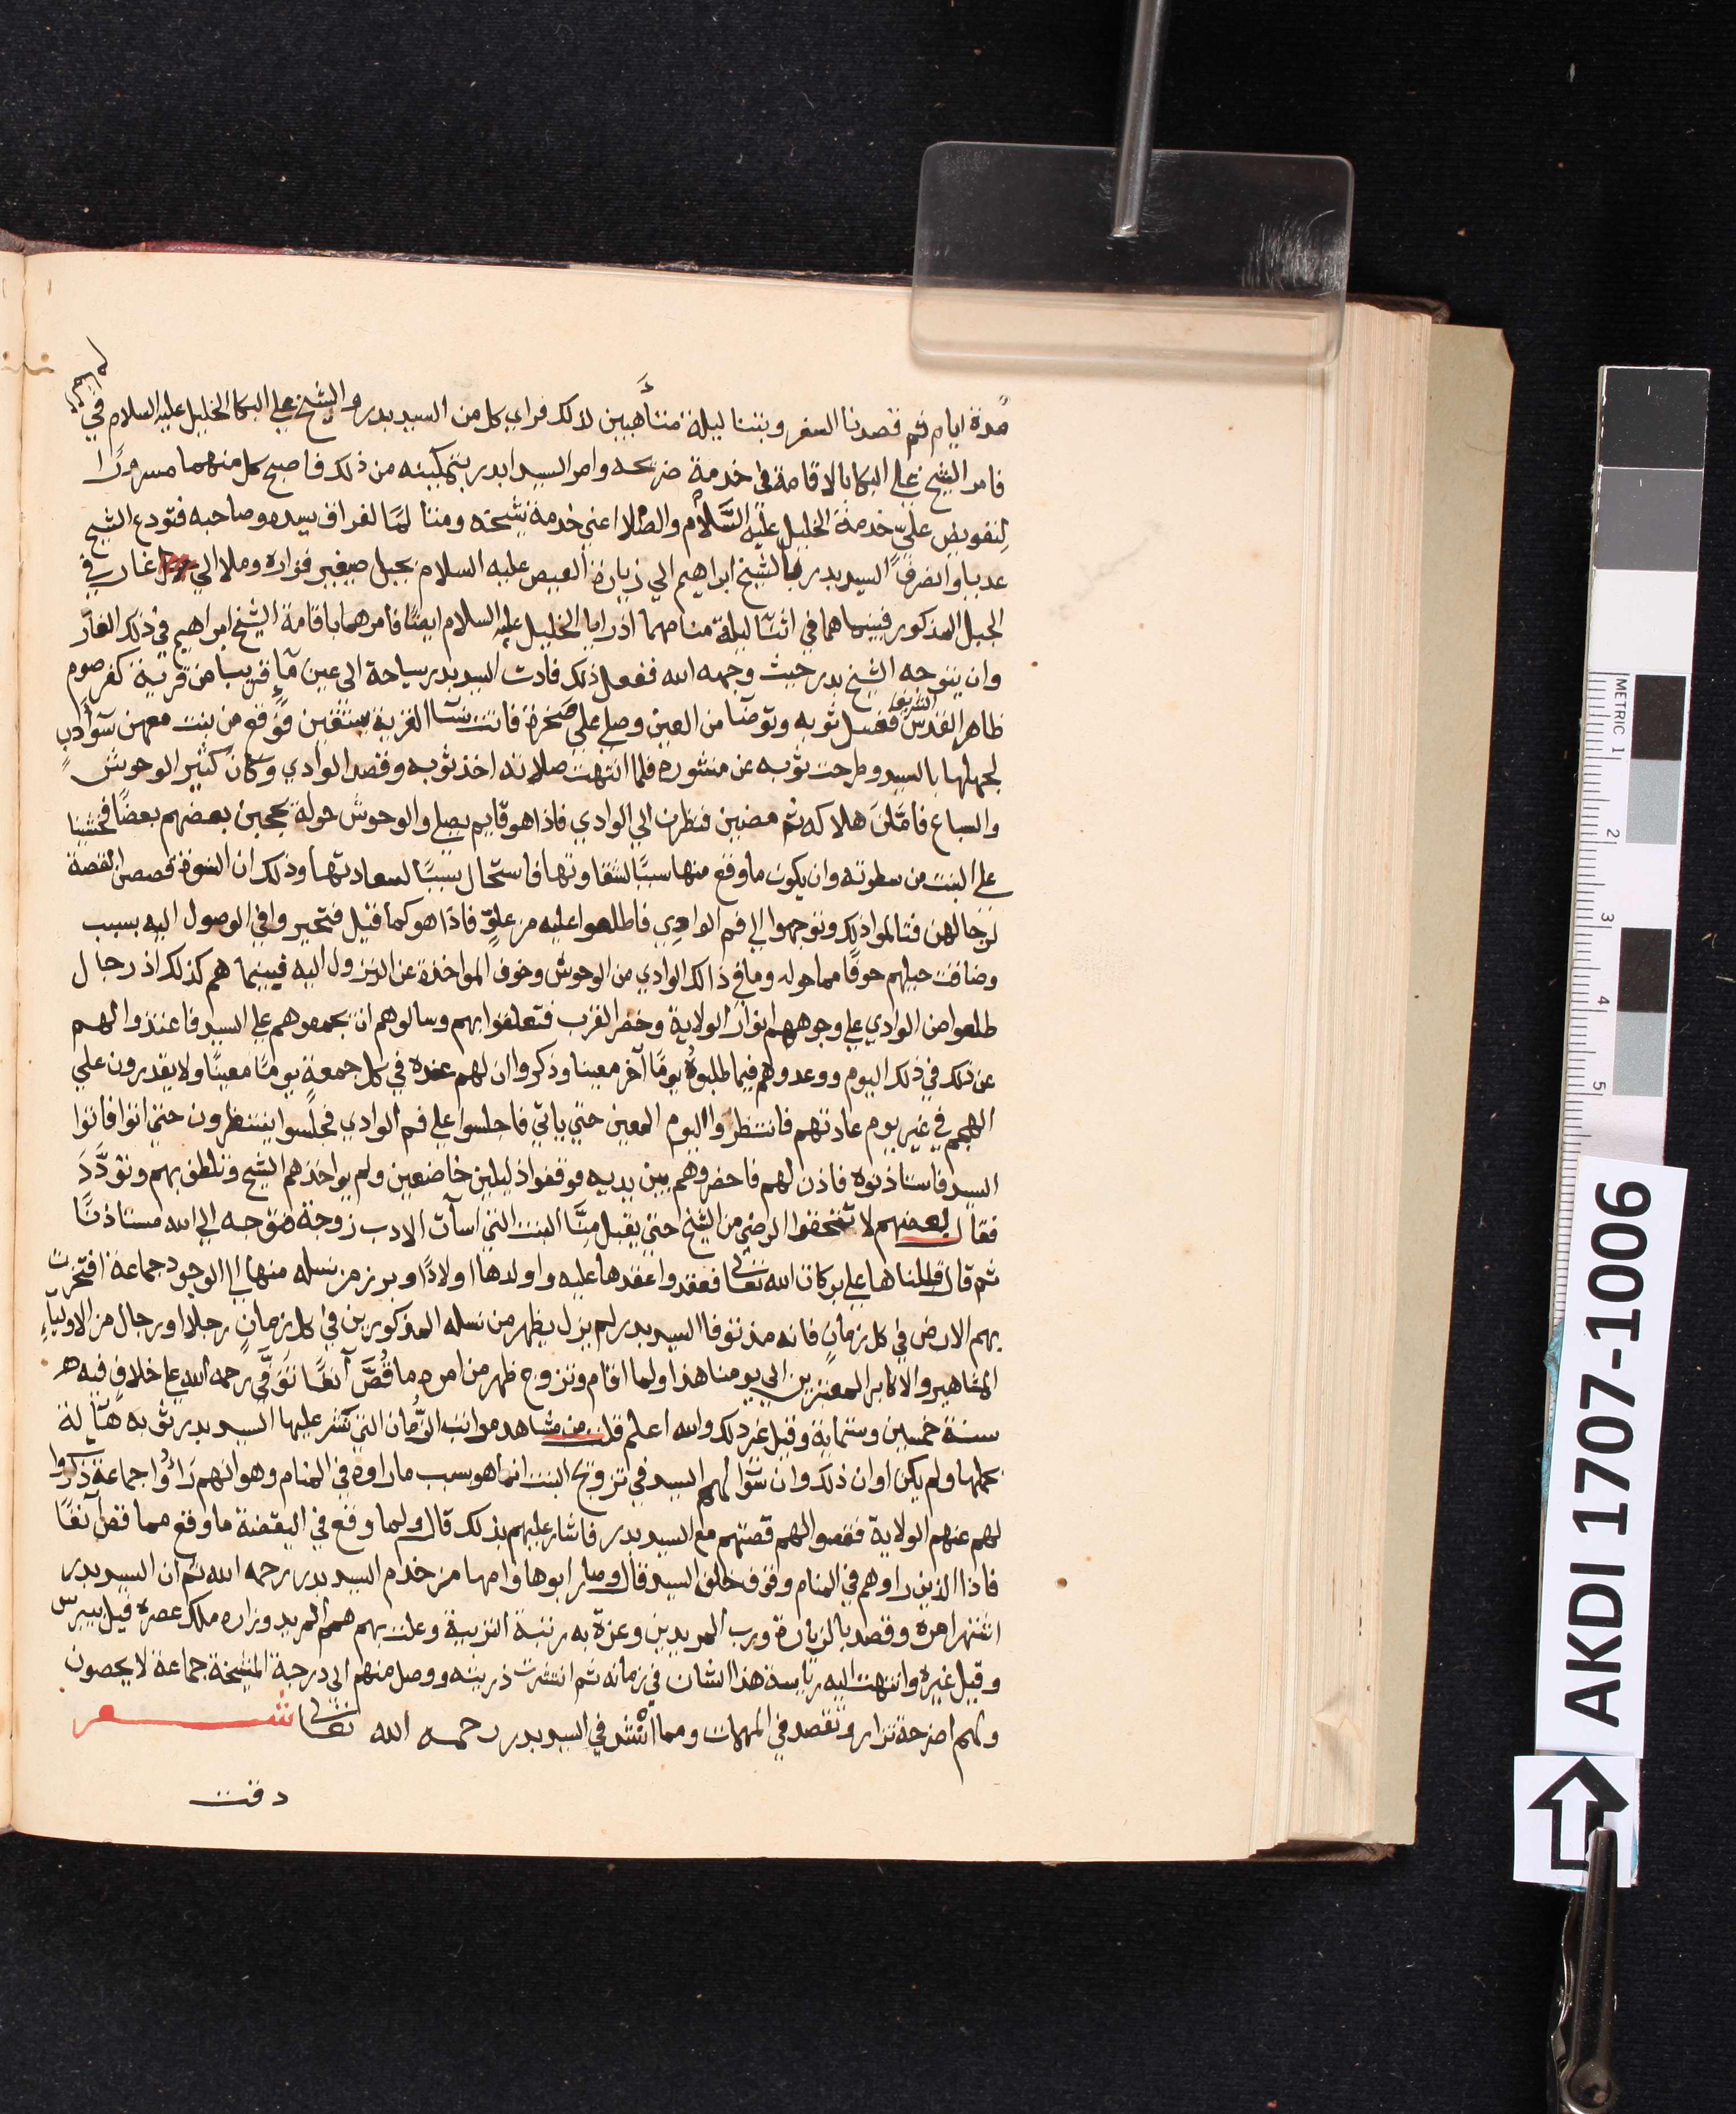 مدة ايام ثم قصدنا السفر وبتنا ليلة متأهبين لذلك فراي كل من السيد بدر والشيخ علي البكا الخليل عليه السلام في
فامر الشيخ علي البكا بالاقامة في خدمة ضريحه وامر السيد بدر بتمكينه من ذلك فاصبح كل منهما مسرورًا
لتفويض علي خدمة الخليل عليه السلام والصلا اعني خدمة شيخه لفراق سيده وصاحبه فتودع الشيخ
والصرف السيد بدر بالشيخ ابراهيم الي زيارة العيص عليه السلام بجبل صيغير فزاره وملا الي غار في
الجبل المذكور فبينما هما في اثنا ليلة منامهما اذ رايا الخليل عليه السلام ايضًا فامرهما باقامة الشيخ ابراهيم في ذلك الغار
وان يتوجه الشيخ بدر حيث وجهه الله ففعل ذلك فادت السيد بدر سياحة الي عين مآءٍ قريبا من قرية كفر صوم
الشريف
ظاهر القدس فغسل ثوبه وتوضا من العين وصلي علي صخرة فاتت نسآ القرية يستقين فوقع من بنت معهن سوأدب
لجهلها بالسيد وطرحت ثوبه عن منشوره فلما انتهت صلاته اخذ ثوبه وقصد الوادي وكان كثير الوحوش
والسباع فامّلن هلاكه ثم مضين فنظرن الي الوادي فاذا هو قايم يصلي والوحوش حوله بعضهم بعضًا فخشينا
علي البنت من سطوته وان يكون ما وقع منها سببًا لشقاوتها فاستحال سببًا لسعادتها وذلك ان النسوة قصصن القصة
لرجالهن فتالموا لذلك وتوجهوا الي فم الوادي فاطلعوا عليه من علوٍّ فاذا هو كما قيل فتحيروا في الوصول اليه بسبب
وضاقت حيلهم خوفًا مما حوله وما في ذالك الوادي من الوحوش وخوف المواخذة عن النزول اليه فبينما هم كذلك اذ رجال
طلعوا من الوادي علي وجوههم انوار الولاية وخفر القرب فتعلقوا بهم وسالوهم ان يجمعوهم علي السيد فاعتذروا لهم
عن ذلك في ذلك اليوم ووعدوهم فيما طلبوه يومًا آخر معينا وذكروا ان لهم عنده في كل جمعة يومًا معينًا ولا يقدرون علي
الهجم في غير يوم عادتهم فانتظروا اليوم المعين حتي ياتي فاجلسوا علي فم الوادي فجلسوا ينتظرون حتي اتوا فاتوا
السيد فاستاذنوه فاذن لهم فاحضروهم بين يديه فوقفوا ذليلين خاضعين ولم يواخذهم الشيخ وتلطف بهم وتودَّدَ
فقال بعضهم لا تتحققوا الرضي من الشيخ حتي يقبل مِنَّا البنت التي اسآت الادب زوجة فتوجه الي الله مستاذنًا
ثم قال قبلناها علي بركات الله تعالي فعقدوا عقدها عليه واولدها اولادًا وبرز من نسله منها الي الوجود جماعة افتخرت
بهم الارض في كل زمانٍ فانه مذ توفا السيد بدر لم يزل يظهر من نسله المذكورين في كل زمانٍ رجلا او رجال من الاوليآء
المشاهير والاكابر المعتبرين الي يومنا هذا ولما اقام وتزوج ظهر من امره ما قُصَّ آنفًا توَفّي رحمه الله علي خلاف فيه
سنة خمسين وستماية وقيل غير ذلك والله اعلم قلت من مشاهد مواتب الرُّمان التي نشر عليها السيد بدر ثوبه
بحملها ولم يكن اوان ذلك وان سوآلهم السيد في تزويج البنت انما هو بسبب ما راوه في المنام وهو انهم رَاوُا جماعة ذكروا
لهم عنهم الولاية فقصوا لهم قصتهم مع السيد بدر فاشار عليهم بذلك قال ولما وقع في اليقضة ما وقع مما قص آنفًا
فاذا الذين راوهم في المنام وقوف خلف السيد قال وصار ابوها وامها من خدم السيد بدر رحمه الله ثم ان السيد بدر
اشتهر امره وقصد بالزيارة ورب المريدين وعزة به رتبة التربية وعلت بهم همم المريد وزاره ملك عصره قيل بيبرس
وقيل غيره وانتهت اليه رياسة هذا الشان في زمانه ثم انتشرت ذريته ووصل منهم الي درجة المشيخة جماعة لا يحصون
ولهم اضرحة تزار وتقصد في المهمات ومما انشد في السيد بدر رحمه الله تعالي شعر
دفت
AKDI 1707-1006
METRIC 1 2 3 4 5